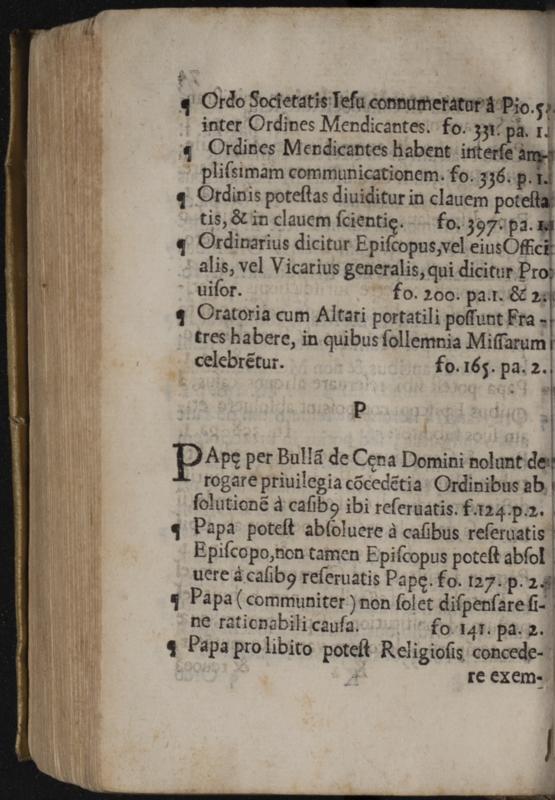 ¶ Ordo Societatis Iesu connumeratur â Pio.5.
inter Ordines Mendicantes. fo. 331. pa. 1.
¶ Ordines Mendicantes habent interse am-
plissimam communicationem. fo. 336. p. 1.
¶ Ordinis potestas diuiditur in clauem potesta
tis, & in clauem scientię. fo. 397. pa. 1.
¶ Ordinarius dicitur Episcopus,vel eius Offici
alis, vel Vicarius generalis, qui dicitur Pro
uisor. fo. 200. pa.1. & 2.
¶ Oratoria cum Altari portatili possunt Fra -
tres habere, in quibus sollemnia Missarum
celebrētur. fo. 165. pa. 2.
P
PApę per Bullã de Cęna Domini nolunt de
rogare priuilegia cõcedētia Ordinibus ab
solutionē à casibꝯ ibi reseruatis. f.124.p.2.
¶ Papa potest absoluere à casibus reseruatis
Episcopo,non tamen Episcopus potest absol
uere à casibꝯ reseruatis Papę. fo. 127. p. 2.
¶ Papa ( communiter ) non solet dispensare si-
ne rationabili causa. fo 141. pa. 2.
¶ Papa pro libito potest Religiosis concede-
re exem-